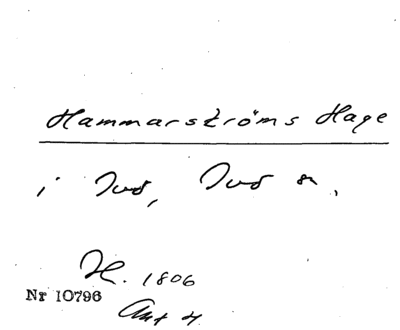 Hammarströms Hage
i Jud, Jud sn,
H. 1806
Nr 10796
Ant 4